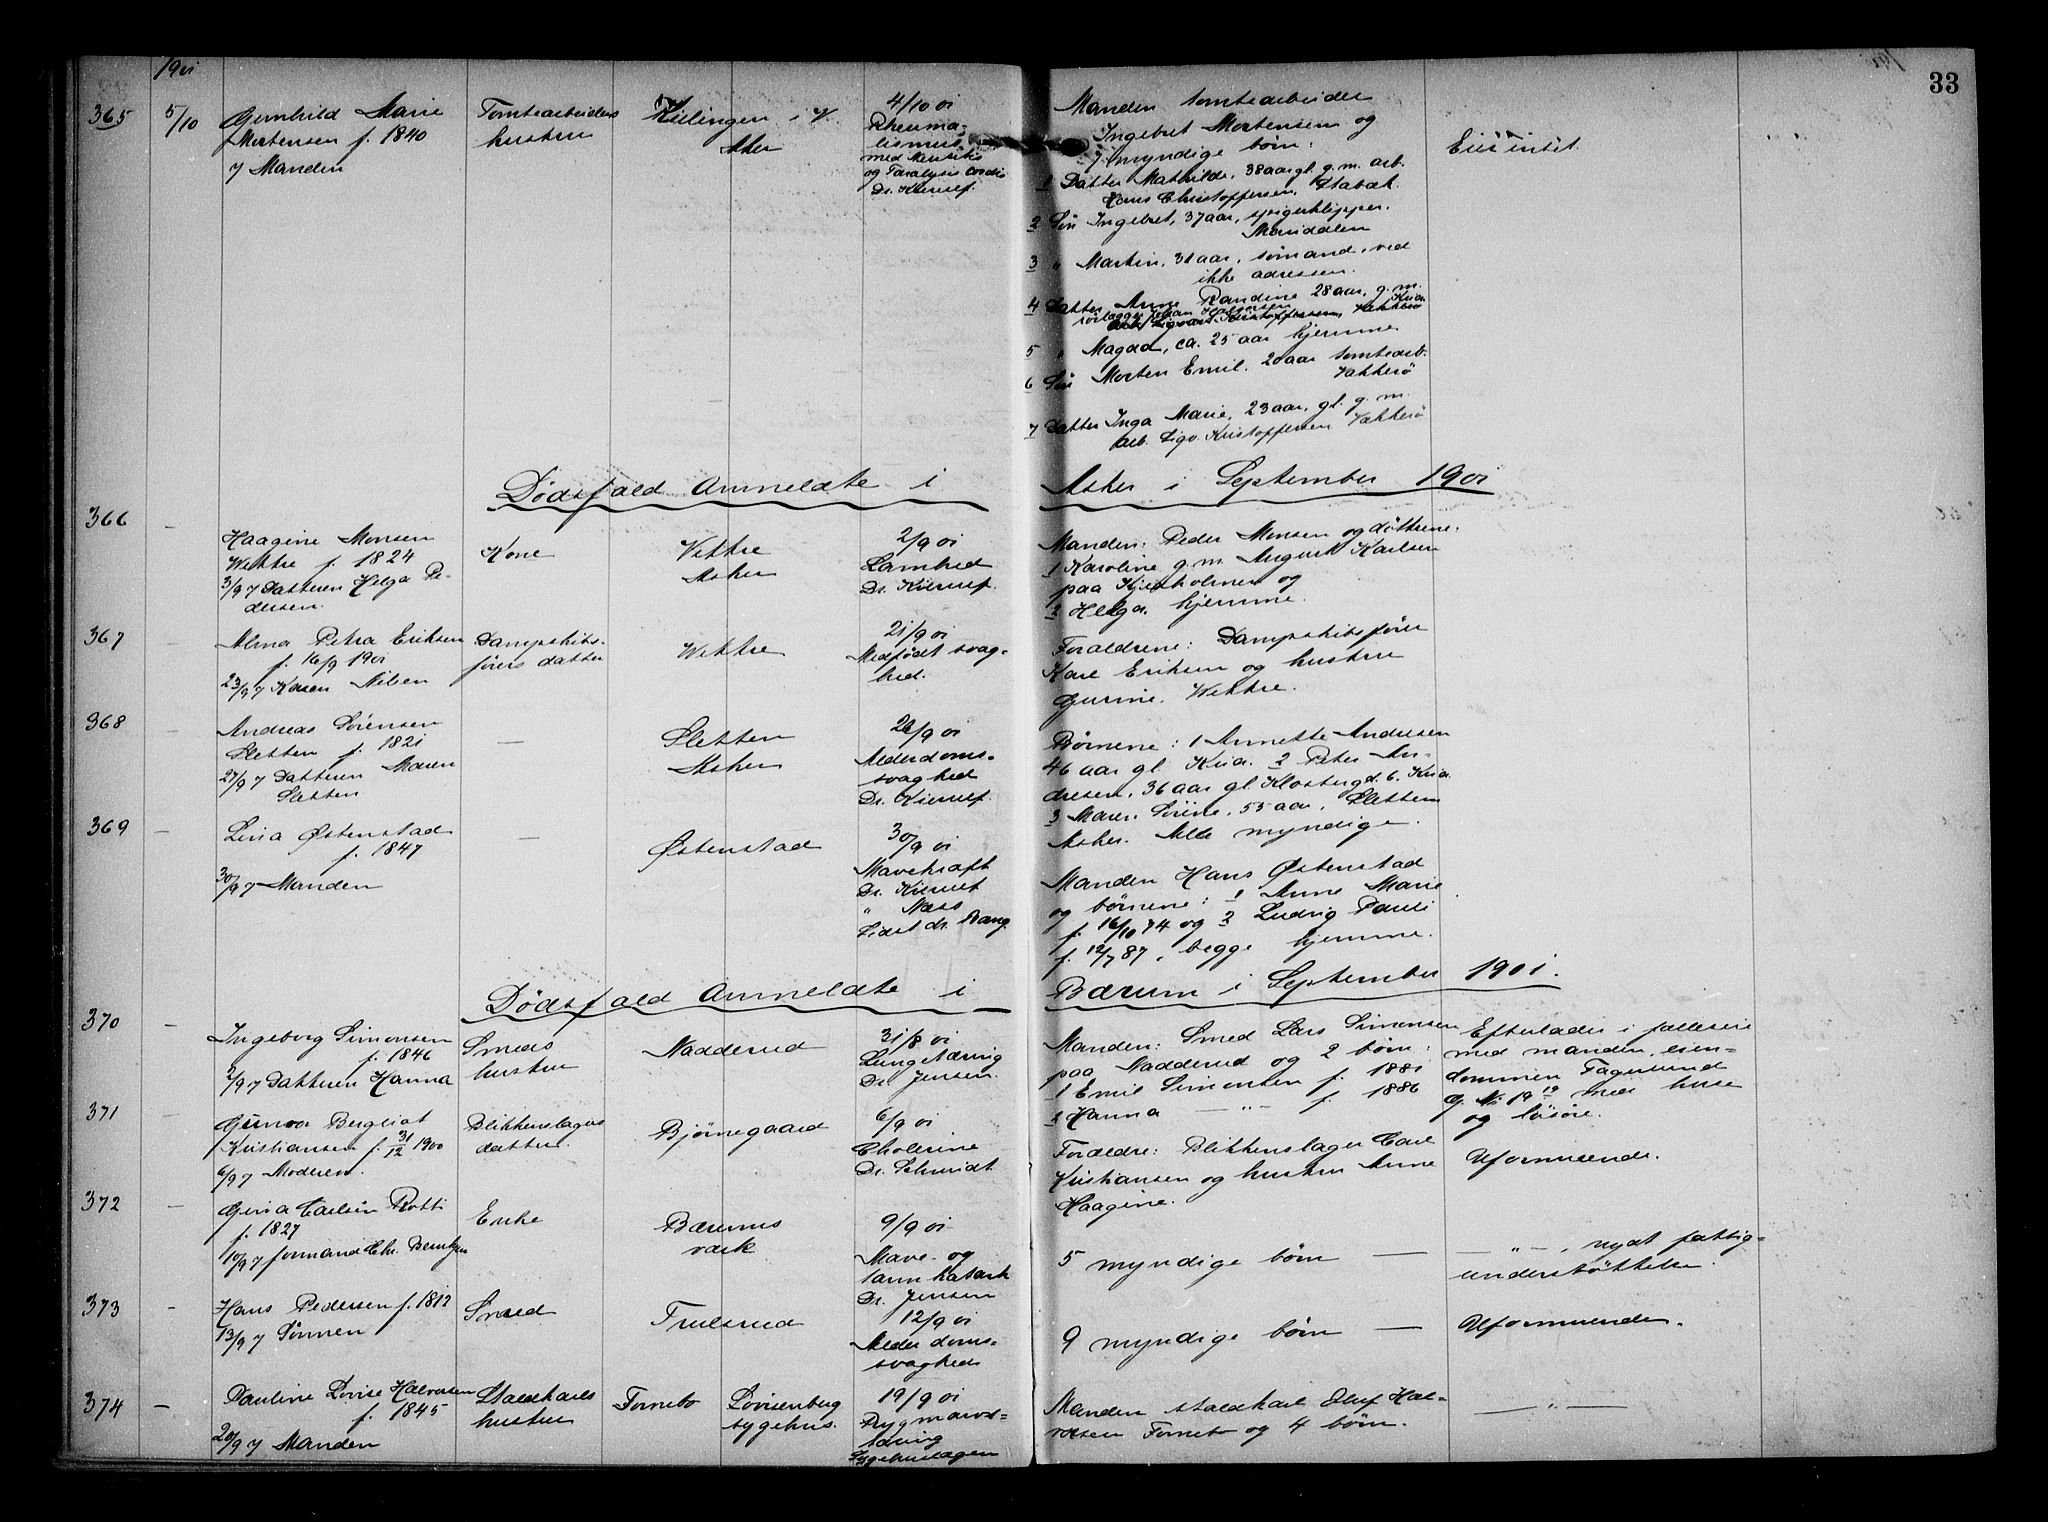 33
1901
365
5/10
Gunhild Marie
Mortensen f. 1840
7 Manden
Tomtearbeiders
hustru
i V.
Aker
4/10 01
Rheuma-
tismus
og Paralysis Cordis
Dr. Kierulf
Manden tomtearbeider
Ingebret Mortensen og
7 myndige børn:
1 Datter Mathilde, 38 aar gl. g. m. arb.
Hans Christoffersen, Stabæk.
2 Søn Ingebret, 37 aar, spigerklipper.
Maridalen
3 " Martin, 31 aar, sømand, ved
ikke adressen.
4 Datter Anne Randine 28 aar, g. m.
Kria
5 " Magda, ca. 25 aar hjemme
6 Søn Morten Emil. 20 aar tomtearb.
Vækkerø
7 Datter Inga Marie, 23 aar, gl. g. m.
arb. Sigv. Kristoffersen Vækkerø
Eier intet.
Dødsfald Anmeldte i Asker i September 1901
366
—
Haagine Monsen
Wettre f. 1824
3/9 7 Datteren Helga Pe-
dersen.
Kone
Vettre
Asker
2/9 01
Lamhed
Dr. Kierulf
Manden: Peder Monsen og døttrene:
1 Karoline g. m. August Karlsen
paa Kjeholmen og
2 Helga. hjemme.
367
—
Alma Petra Eriksen
f. 16/9 1901
23/9 7 Karen Niben
Dampskibs-
førers datter
Wettre
21/9 01
Medfødt svag-
hed.
Forældrene: Dampskibsfører
Karl Eriksen og hustru
Gurine. Wettre.
368
—
Andreas Sørensen
Sletten f. 1821
27/9 7 Datteren Maren
Sletten
—
Sletten
Asker
/9 01
Alderdoms-
svaghed
Dr. Kierulf.
Børnene: 1 Annette Andresen
46 aar gl. Kria. 2 Peter An-
dresen, 36 aar gl Klostergd. 6. Kria
3 Maren Sørine, 55 aar, Sletten
Asker. Alle myndige.
369
—
Lina Østenstad
f. 1847
30/9 7 Manden
—
Østenstad
30/9 01
Mavekræft
Dr. Kierulf
" Næss
Sidst dr. Bang.
Manden Hans Østenstad
og børnene: 1 Anne Marie
f. 16/10 74 og 2 Ludvig Pauli
f. 12/7 87, begge hjemme.
Dødsfald Anmeldte i Bærum i September 1901.
370
—
Ingeborg Simonsen
f. 1846
2/9 7 Datteren Hanna
Smeds
hustru
Nadderud
31/8 01
Lungetæring
Dr. Jensen.
Manden: Smed Lars Simonsen
paa Nadderud og 2 børn:
1 Emil Simonsen f. 1881
2 Hanna — " — f. 1886
Efterlader i fælleseie
med manden, eien-
dommen Fagerlund
G. No 19 19 med huse
og løsøre.
371
—
Gunvor Bergliot
Kristiansen f. 31/12 1900
6/9 7 Moderen.
Blikkenslagers
datter.
Bjørnegaard
6/9 01
Cholerine
Dr. Schmidt
Forældre: Blikkenslager Carl
Kristiansen og hustru Anne
Haagine.
Uformuende.
372
—
Gina Carlsen
f. 1827
10/9 7 formand Chr. Berntzen
Enke
Bærums
værk
9/9 01
Mave- og
tarmkatarh
Dr. Jensen
5 myndige børn —
— " —, nydt fattig-
understøttelse.
373
—
Hans Pedersen f. 1812
13/9 7 Sønnen
Smed
Trulsrud
12/9 01
Alderdoms-
svaghed
9 myndige børn —
Uformuende.
374
—
Pauline Lovise Halvorsen
f. 1845
20/9 7 Manden
Staldkarls
hustru
Fornebo
Lovisenberg
sygehus.
19/9 01
Rygmarvs-
tæring
Sygehuslægen
Manden staldkarl Oluf Hal-
vorsen Fornebo og 4 børn.
— " —